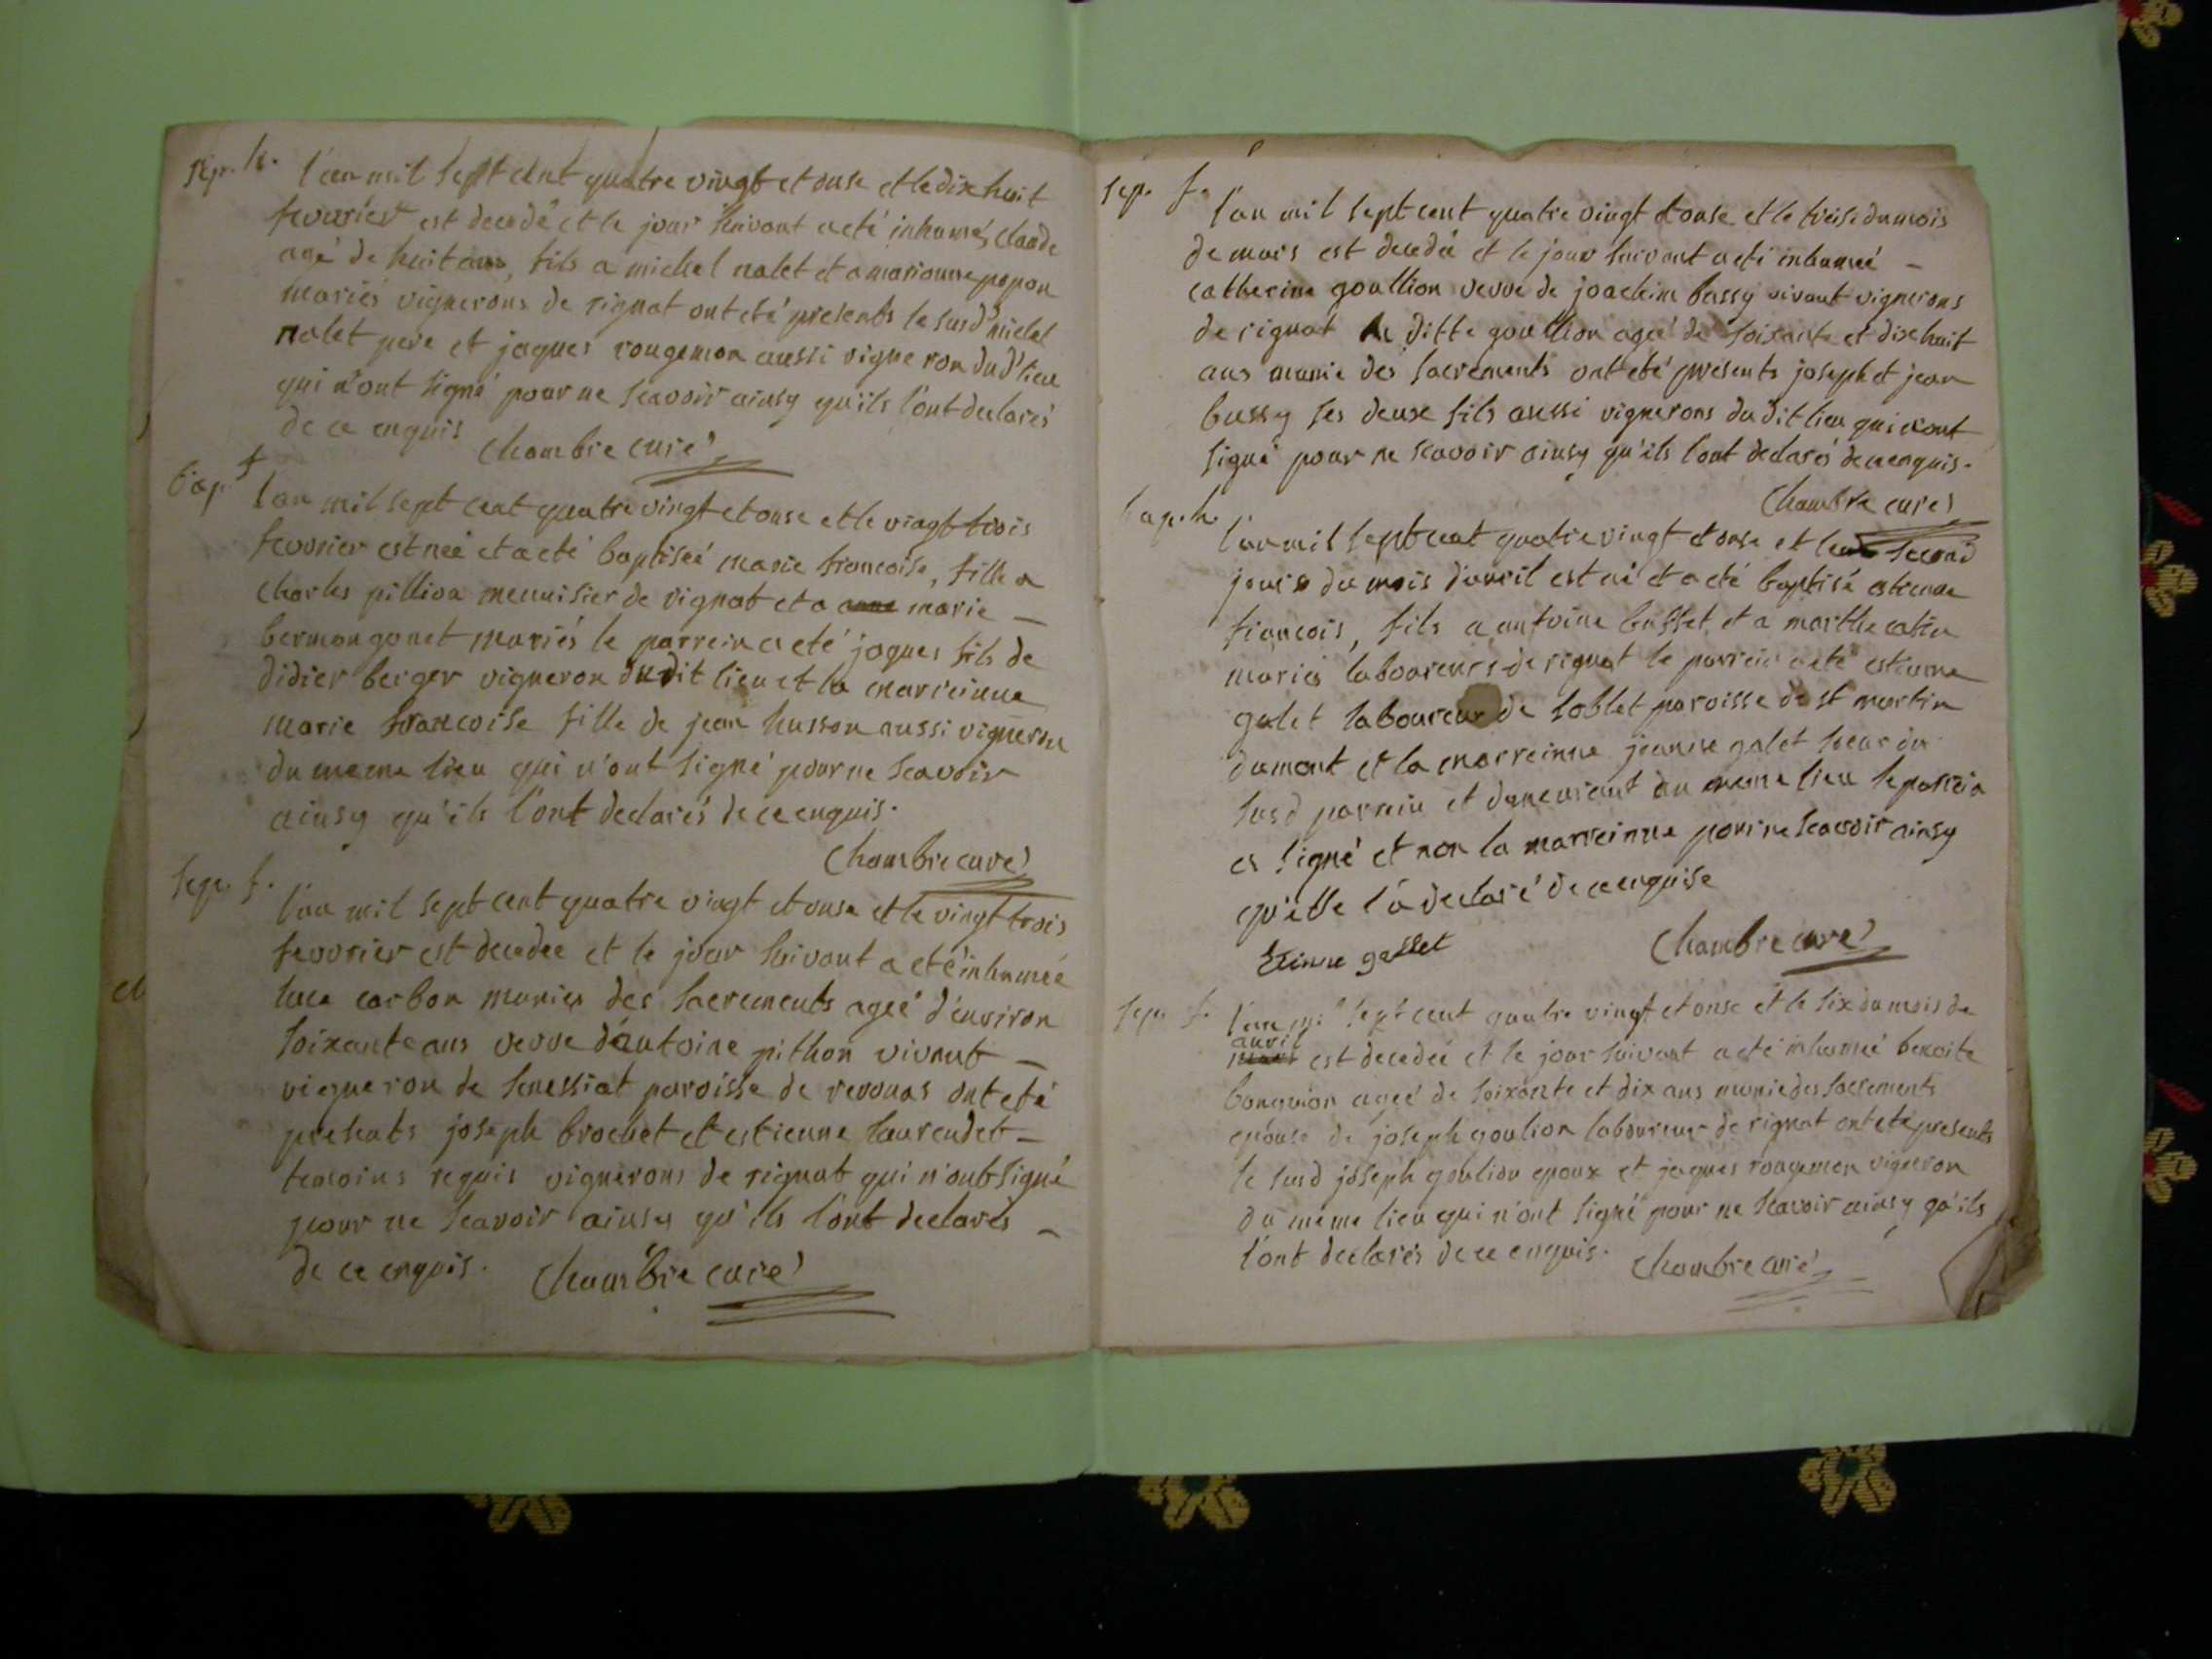 sep. h.
l'an mil sept cent quatre vingt et onse et le dix huit
fevrier est decedé et le jour suivant a eté inhumé claude
agé de huit ans, fils a michel nalet et a marianne popon
mariés vignerons de rignat ont eté presents le susd michel
nalet pere et jaques rougemon aussi vigneron dud lieu
qui n'ont signé pour ne scavoir ainsy qu'ils l'ont declarés
de ce enquis chambre curé
bap. f
l'an mil sept cent quatre vingt et onse et le vingt trois
fevrier est neé et a eté baptiseé marie francoise, fille a
charles pillion menuisier de rignat et a anne marie —
bermon gonet mariés le parrein a eté jaques fils de
didier berger vigneron du dit lieu et la marreinne
marie francoise fille de jean husson aussi vigneron
du meme lieu qui n'ont signé pour ne scavoir
ainsy qu'ils l'ont declarés de ce enquis.
chambre curé
sep. f.
l'an mil sept cent quatre vingt et onse et le vingt trois
fevrier est decedeé et le jour suivant a eté inhumeé
luce carbon munies des sacrements ageé d'environ
soixante ans veuve d'antoine pithon vivant —
vigneron de senessiat paroisse de revonas ont eté
presents joseph brochet et estienne laurendet —
temoins requis vignerons de rignat qui n'ont signé
pour ne scavoir ainsy qu'ils l'ont declarés —
de ce enquis. chambre curé
sep. f.
l'an mil sept cent quatre vingt et onse et le treise du mois
de mars est decedeé et le jour suivant a eté inhumeé —
catherine goullion veuve de joachim bussy vivant vignerons
de rignat la ditte goullion ageé de soixante et dix huit
ans munie des sacrements ont eté presents joseph et jean
bussy ses deux fils aussi vignerons du dit lieu qui n'ont
signé pour ne scavoir ainsy qu'ils l'ont declarés de ce enquis.
chambre curé
bap. h.
l'an mil sept cent quatre vingt et onse et le second
jour du mois d'avril est né et a eté baptisé estienne
francois, fils a antoine busset et a marthe
mariés laboureurs de rignat le parrein a eté estienne
galet laboureur de soblet paroisse de st martin
dumont et la marreinne jeanne galet soeur du
susd parrein et demeurant au meme lieu le parrein
a signé et non la marreinne pour ne scavoir ainsy
qu'elle l'a declaré de ce enquise
Etienne gallet chambre curé
sep. f.
l'an mil sept cent quatre vingt et onse et le six du mois de
avril
mars est decedeé et le jour suivant a eté inhumeé benoite
bonguion ageé de soixante et dix ans munie des sacrements
epouse de joseph goulion laboureur de rignat ont eté presents
le susd joseph goulion epoux et jaques rougemon vigneron
du meme lieu qui n'ont signé pour ne scavoir ainsy qu'ils
l'ont declarés de ce enquis. chambre curé